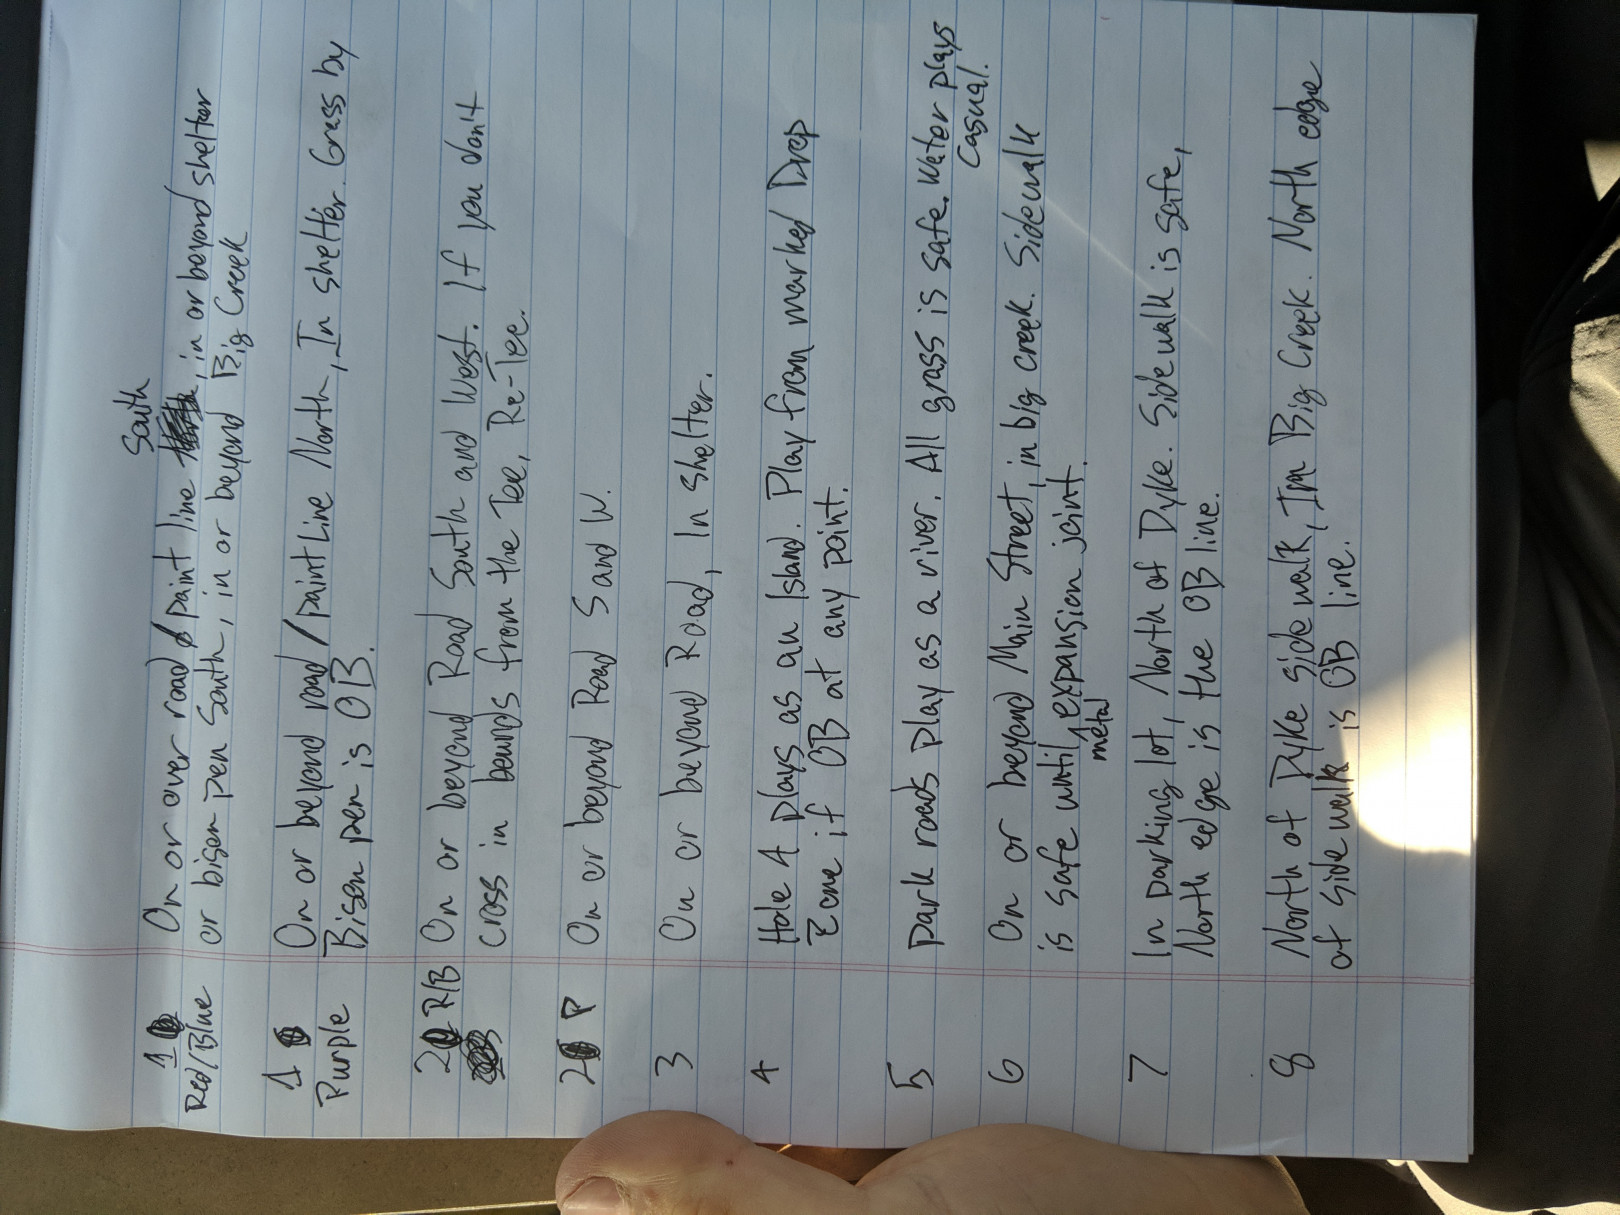 South
1 On or over road / paint line, in or beyond shelter
Red/Blue or bison pen South, in or beyond Big Creek
1 On or beyond road / paint line North, In shelter. Grass by
Purple Bison pen is OB.
2 R/B On or beyond Road South and West. If you don't
cross in bounds from the Tee, Re-Tee.
2 P On or beyond Road S and W.
3 On or beyond Road, In shelter.
4 Hole 4 plays as an Island. Play from marked Drop
Zone if OB at any point.
5 Park roads play as a river. All grass is safe. Water plays
casual.
6 On or beyond Main Street, in big creek. Sidewalk
is safe until expansion joint.
metal
7 In parking lot, North of Dyke. Sidewalk is safe,
North edge is the OB line.
8 North of Dyke side walk, Inn Big Creek. North edge
of sidewalk is OB line.